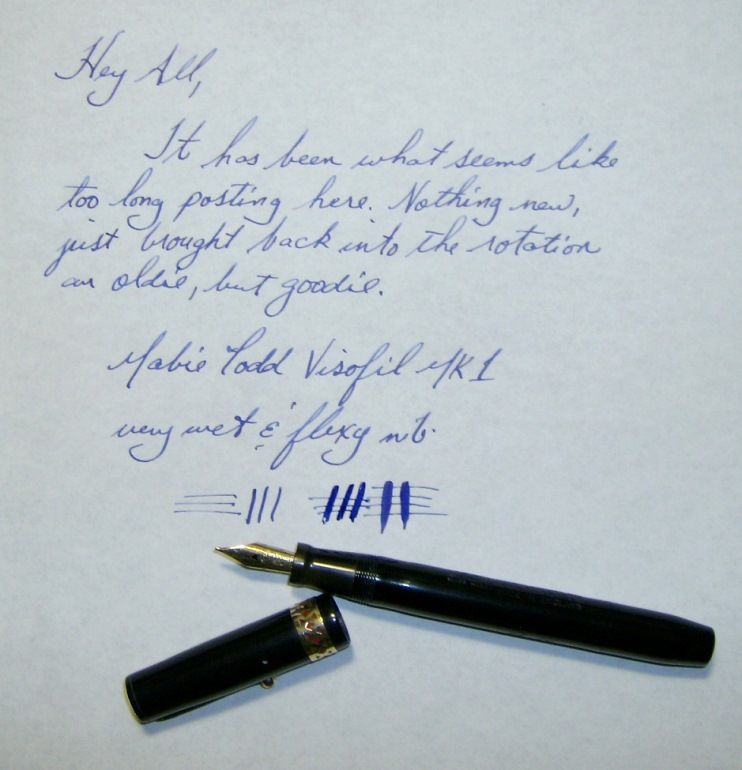 Hey All,
It has been what seems like
too long posting here. Nothing new,
just brought back into the rotation
an oldie, but goodie.
Mabie Todd Visofil MK 1
very wet & flexy nib.